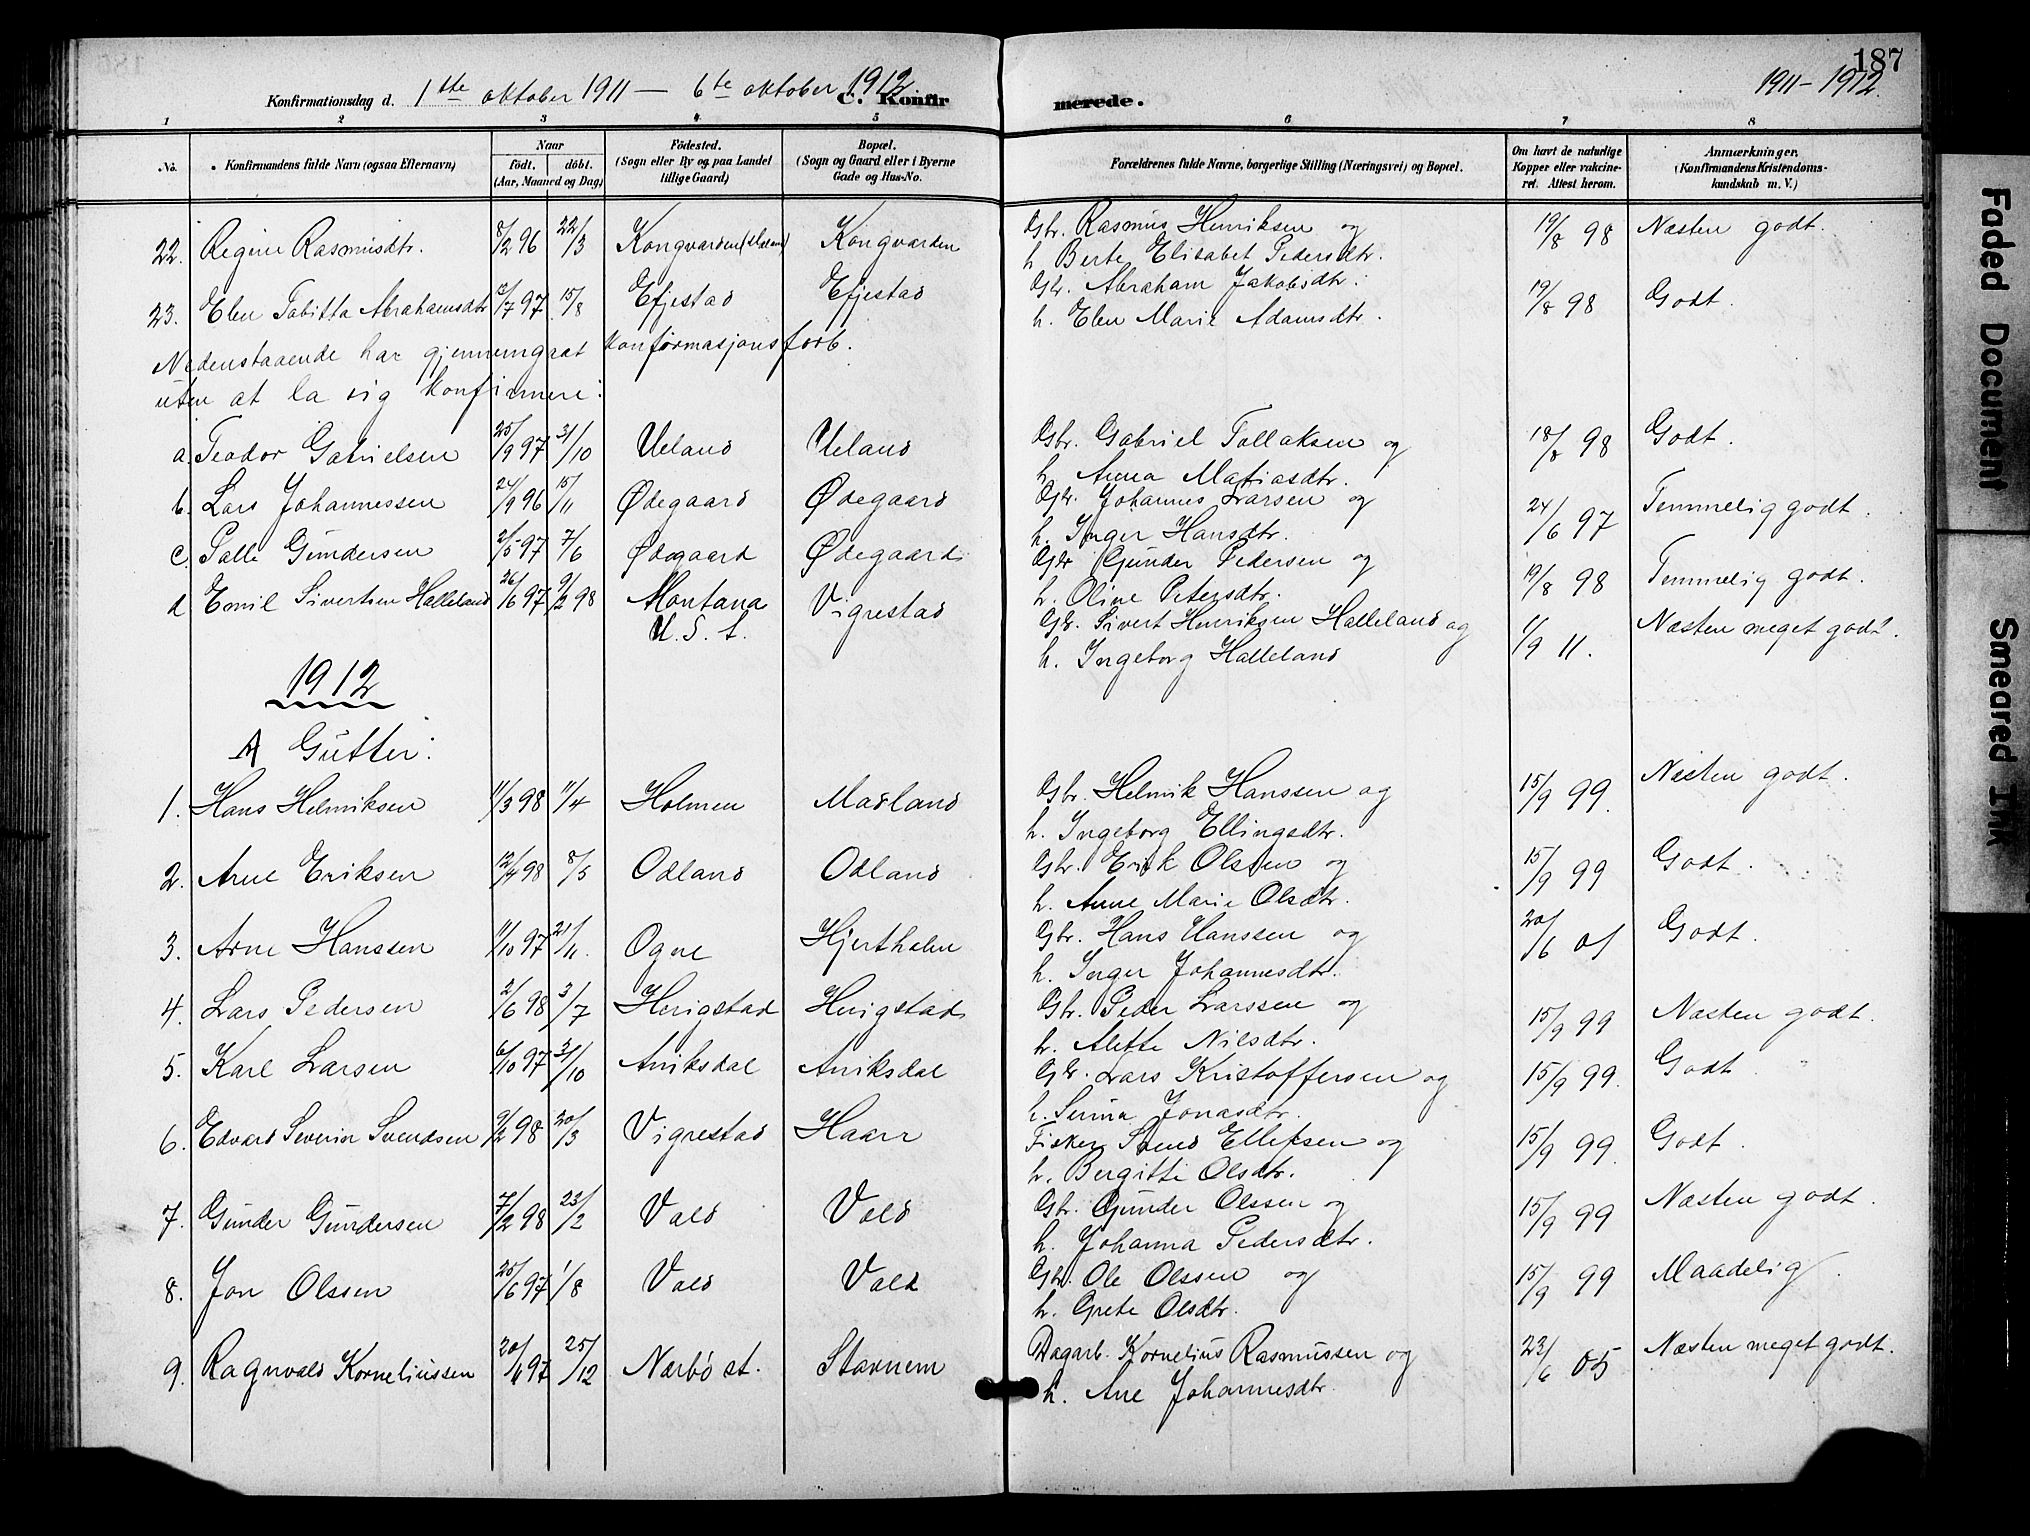 187
1911-1912.
Konfirmationsdag d. 1ste oktober 1911 — 6te oktober 1912. C. Konfirmerede.
1 2 3 4 5 6 7 8
No. Konfirmandens fulde Navn (ogsaa Efternavn) Naar født. døbt. (Aar, Maaned og Dag) Fødested. (Sogn eller By og paa Landet tillige Gaard) Bopæl. (Sogn og Gaard eller i Byerne Gade og Hus-No. Forældrenes fulde Navne, borgerlige Stilling (Næringsvei) og Bopæl. Om havt de naturlige Kopper eller vakcineret. Attest herom. Anmærkninger. (Konfirmandens Kristendomskundskab m. V.)
22. Regine Rasmusdtr. 8/2 96 22/3 Kongvarden Kongvarden Gbr. Rasmus Henriksen og 19/8 98 Næsten godt.
h. Berte Elisabet Pedersdtr.
23. Elen Tabitta Abrahamsdtr 97 15/8 Efjestad Efjestad Gbr. Abraham Jakobsdtr. 19/8 98 Godt.
h. Elen Marie Adamsdtr.
Nedenstaaende har gjennemgaat konfirmasjonsforb.
uten at la sig konfirmere:
a. Teodor Gabrielsen 25/9 97 31/10 Ueland Ueland Gbr. Gabriel Tollaksen og 18/8 98 Godt.
h. Anna Matiasdtr.
b. Lars Johannessen 24/9 96 15/11 Ødegaard Ødegaard Gbr. Johannes Larsen og 24/6 97 Temmelig godt.
h. Inger Hansdtr.
c. Palle Gundersen 2/5 97 7/6 Ødegaard Ødegaard Gbr Gunder Pedersen og 19/8 98 Temmelig godt.
h. Oline Petersdtr.
d Emil Sivertsen Halleland 26/6 97 9/2 98 Montana Vigrestad Gbr. Sivert Henriksen Halleland og 1/9 11. Næsten meget godt.
U.S.A. h. Ingeborg Halleland
1912
A Gutter:
1. Hans Helmiksen 11/3 98 11/4 Holmen Madland Gbr. Helmik Hanssen og 15/9 99. Næsten godt.
h. Ingeborg Ellingsdtr.
2. Arne Eriksen 12/4 98 8/5 Odland Odland Gbr. Erik Olssen og 15/9 99 Godt.
h. Anne Marie Olsdtr.
3. Arne Hanssen 11/10 97 21/11. Ogne Hjertholen Gbr. Hans Hanssen og 20/6 01 Godt.
h. Inger Johannesdtr.
4. Lars Pedersen 2/6 98 3/7 Herigstad Herigstad Gbr. Peder Larssen og 15/9 99 Næsten godt.
h. Alette Nilsdtr.
5. Karl Larsen 6/10 97 31/10 Aniksdal Aniksdal Gbr. Lars Kristoffersen og 15/9 99. Godt.
h. Serina Jonasdtr.
6. Edvard Severin Svendsen 9/2 98 20/3 Vigrestad Haarr Fisker Svend Ellefsen og 15/9 99. Godt.
h. Bergitte Olsdtr.
7. Gunder Gundersen 7/2 98 23/2 Vold Vold Gbr. Gunder Olssen og 15/9 99 Næsten godt.
h. Johanna Pedersdtr.
8. Jon Olssen 25/6 97 1/8 Vold Vold Gbr. Ole Olssen og 15/9 99 Maadelig.
h. Grete Olsdtr.
9. Ragnvald Korneliussen 97 25/12 Nærbø st. Stavnem Dagarb. Kornelius Rasmussen og 23/6 05 Næsten meget godt.
h. Ane Johannesdtr.
Faded Document
Smeared Ink